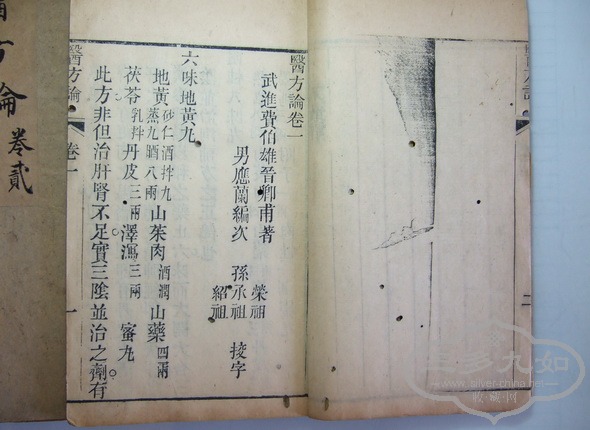 醫方論卷一
武進費伯雄晉卿甫著
男應蘭編次 孫承祖 榮祖 紹祖 挍字
六味地黃丸
地黃 砂仁酒拌九蒸九晒八兩 山茱肉 酒潤 山藥 四兩
茯苓 乳拌 丹皮 三兩 澤瀉 三兩 蜜丸
此方非但治肝腎不足實三陰並治之劑有
醫方論 卷一 一
方論 卷貳
二
三多九如
www.silver-china.net